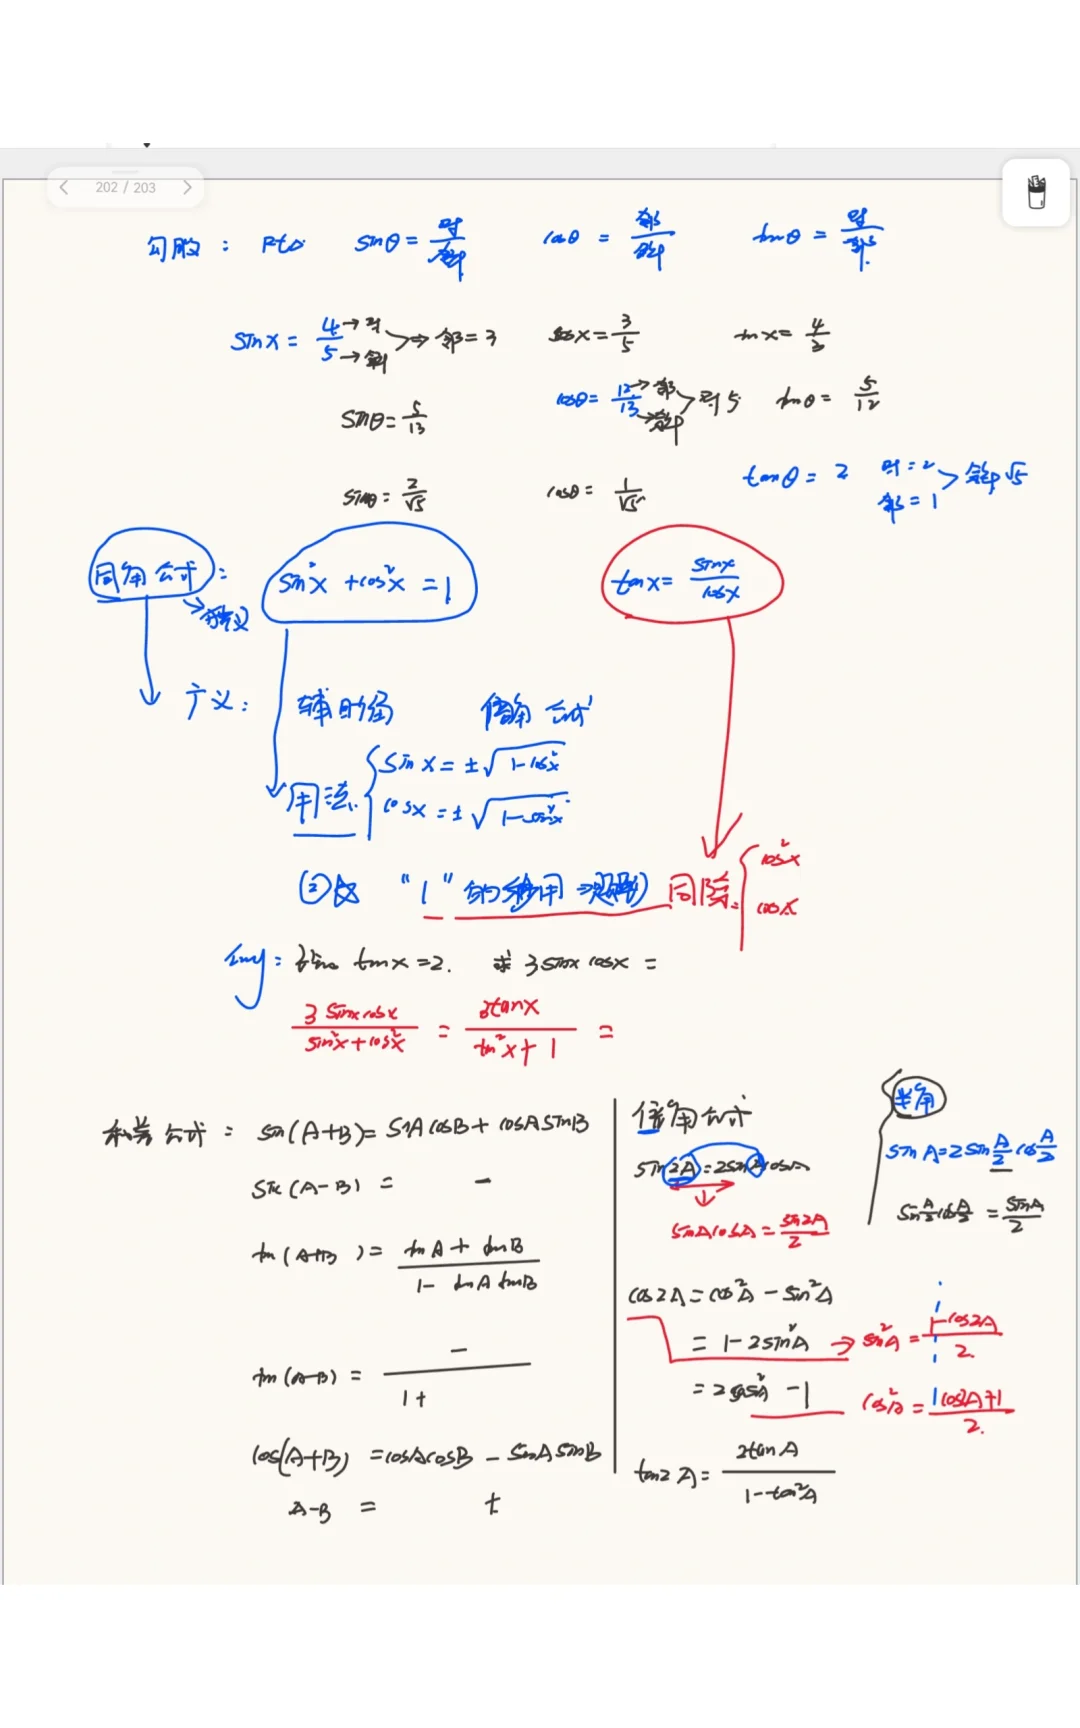 202 / 203
勾股: Rt△ sinθ = 对/斜 cosθ = 邻/斜 tanθ = 对/邻
sinx = 4/5 →对 →斜 ⇒ 邻=3 cosx = 3/5 tanx = 4/3
sinθ = 5/13 cosθ = 12/13 →邻 →斜 > 对5 tanθ = 5/12
sinθ = 2/√5 cosθ = 1/√5 tanθ = 2 对=2 邻=1 > 斜√5
同角公式: sin²x + cos²x = 1 tanx = sinx/cosx
广义: 辅助角 倍角公式
用法 { sinx = ±√1-cos²x
cosx = ±√1-sin²x
② "1"的 用 同除 { cos²x
cosx
tanx=2. 求 3sinx cosx =
3sinxcosx/sin²x+cos²x = 3tanx/tan²x+1 =
和差公式: sin(A+B)= sinAcosB + cosAsinB
sin(A-B) = -
tan(A+B) = tanA + tanB / 1- tanA tanB
tan(A-B) = - / 1+
cos(A+B) = cosAcosB - sinA sinB
A-B = +
倍角公式
sin2A = 2sinAcosA
↓
sinAcosA = sin2A/2
cos2A = cos²A - sin²A
= 1-2sin²A → sin²A = 1-cos2A/2
= 2cos²A -1 cos²A = cos2A+1/2
tan2A = 2tanA/1-tan²A
半角
sinA=2sin A/2 cos A/2
sin A/2 cos A/2 = sinA/2